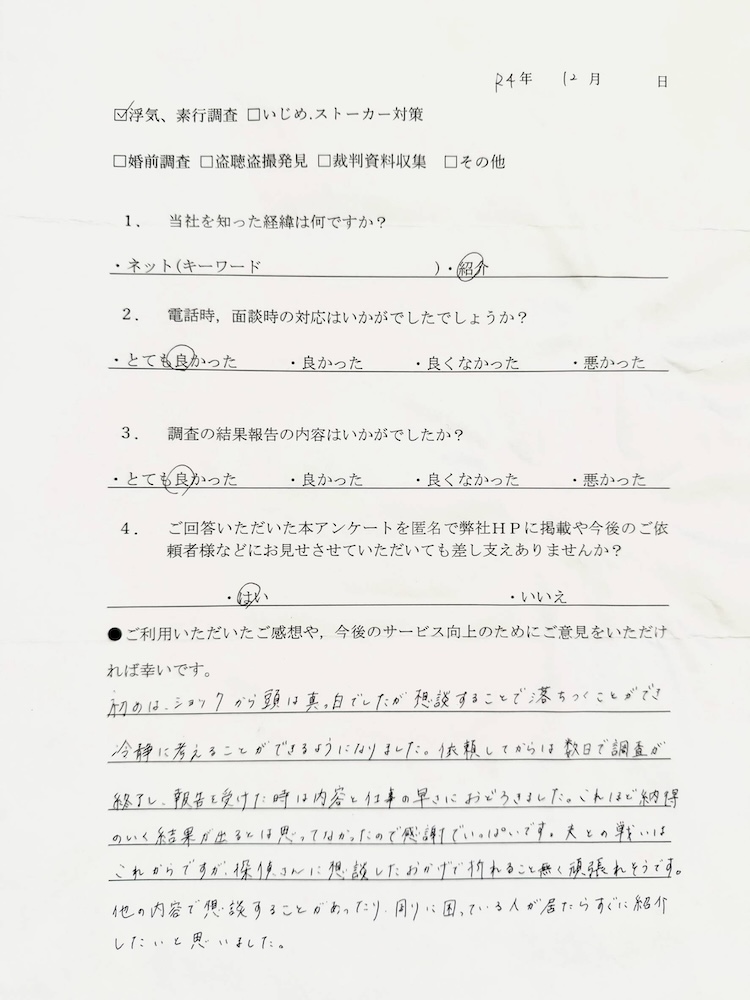 R4年 12月 日
☑浮気、素行調査 □いじめ.ストーカー対策
□婚前調査 □盗聴盗撮発見 □裁判資料収集 □その他
1. 当社を知った経緯は何ですか?
・ネット(キーワード )・紹介
2. 電話時,面談時の対応はいかがでしたでしょうか?
・とても良かった ・良かった ・良くなかった ・悪かった
3. 調査の結果報告の内容はいかがでしたか?
・とても良かった ・良かった ・良くなかった ・悪かった
4. ご回答いただいた本アンケートを匿名で弊社HPに掲載や今後のご依
頼者様などにお見せさせていただいても差し支えありませんか?
・はい ・いいえ
●ご利用いただいたご感想や,今後のサービス向上のためにご意見をいただけ
れば幸いです。
初めは、ショックから頭は真っ白でしたが想談することで落ちつくことができ
冷静に考えることができるようになりました。依頼してからは数日で調査が
終了し、報告を受けた時は内容と仕事の早さにおどろきました。これほど納得
のいく結果が出るとは思ってなかったので感謝でいっぱいです。夫との戦いは
これからですが、探偵さんに想談したおかげで折れること無く頑張れそうです。
他の内容で想談することがあったり、周りに困っている人が居たらすぐに紹介
したいと思いました。